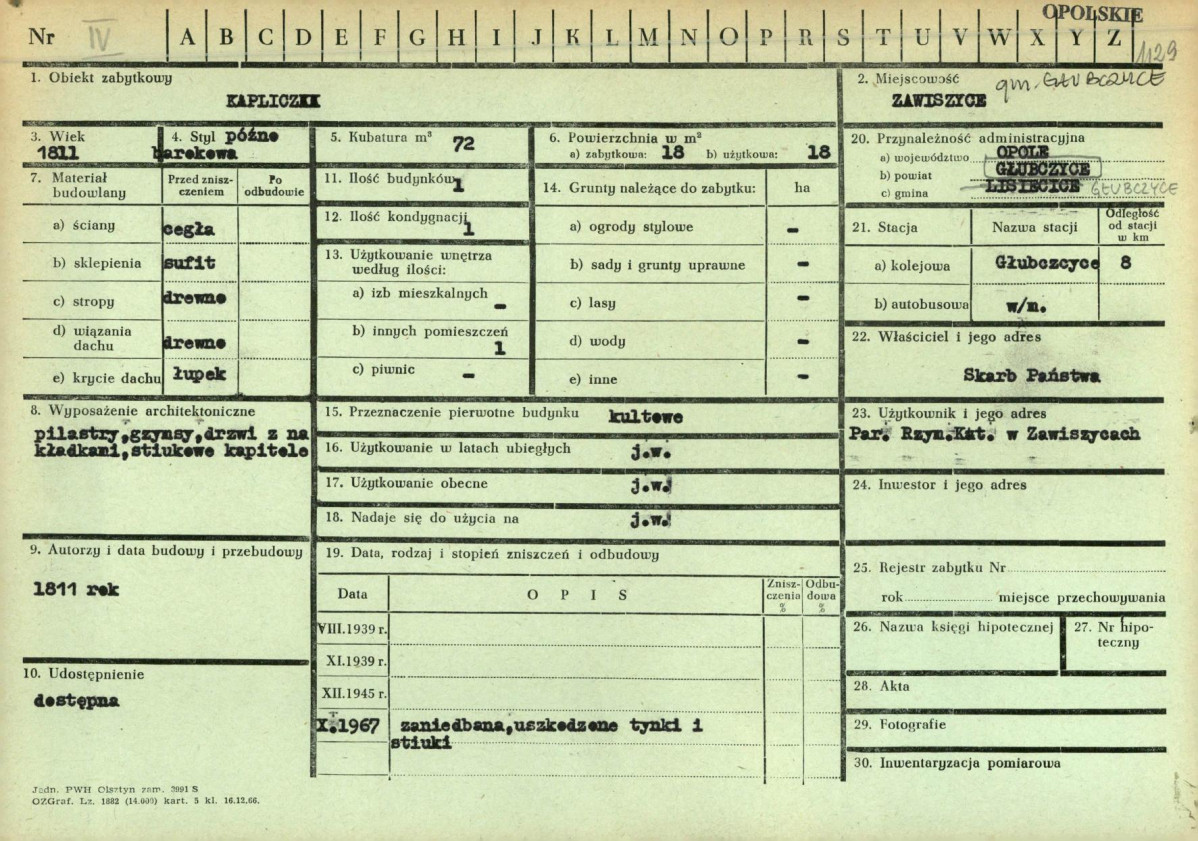 OPOLSKIE
Nr IV A B C D E F G H I J K L M N O P R S T U V W X Y Z
1129
1. Obiekt zabytkowy
KAPLICZKK
2. Miejscowość gm. GŁUBCZYCE
ZAWISZYCE
3. Wiek
1811
4. Styl późno
barokowa
5. Kubatura m³ 72
6. Powierzchnia w m²
a) zabytkowa: 18 b) użytkowa: 18
7. Materiał budowlany
Przed znisz-
czeniem
Po
odbudowie
a) ściany cegła
b) sklepienia sufit
c) stropy drewno
d) wiązania
dachu drewno
e) krycie dachu łupek
8. Wyposażenie architektoniczne
pilastry,gzymsy,drzwi z na
kładkami,stiukowe kapitele
9. Autorzy i data budowy i przebudowy
1811 rok
10. Udostępnienie
dostępna
11. Ilość budynków 1
12. Ilość kondygnacji 1
13. Użytkowanie wnętrza
według ilości:
a) izb mieszkalnych -
b) innych pomieszczeń 1
c) piwnic -
14. Grunty należące do zabytku: ha
a) ogrody stylowe -
b) sady i grunty uprawne -
c) lasy -
d) wody -
e) inne -
15. Przeznaczenie pierwotne budynku kultowe
16. Użytkowanie w latach ubiegłych j.w.
17. Użytkowanie obecne j.w.
18. Nadaje się do użycia na j.w.
19. Data, rodzaj i stopień zniszczeń i odbudowy
Data O P I S Znisz-
czenia
% Odbu-
dowa
%
VIII.1939 r.
XI.1939 r.
XII.1945 r.
X.1967 zaniedbana,uszkodzone tynki i
stiuki
20. Przynależność administracyjna
a) województwo OPOLE
b) powiat GŁUBCZYCE
c) gmina LISIECICE GŁUBCZYCE
21. Stacja Nazwa stacji Odległość
od stacji
w km
a) kolejowa Głubczcyce 8
b) autobusowa w/m.
22. Właściciel i jego adres
Skarb Państwa
23. Użytkownik i jego adres
Par. Rzym.Kat. w Zawiszycach
24. Inwestor i jego adres
25. Rejestr zabytku Nr
rok miejsce przechowywania
26. Nazwa księgi hipotecznej
27. Nr hipo-
teczny
28. Akta
29. Fotografie
30. Inwentaryzacja pomiarowa
Jedn. PWH Olsztyn zam. 3991 S
OZGraf. Lz. 1882 (14.000) kart. 5 kl. 16.12.66.